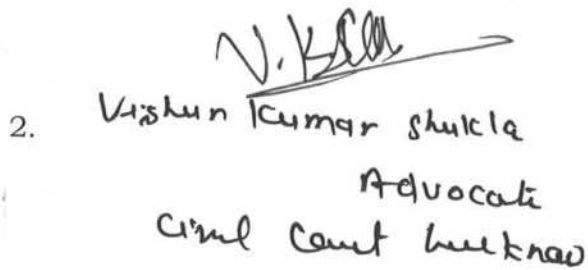 2. Vishun Kumar Shukla
Advocate
Civil Court Lucknow